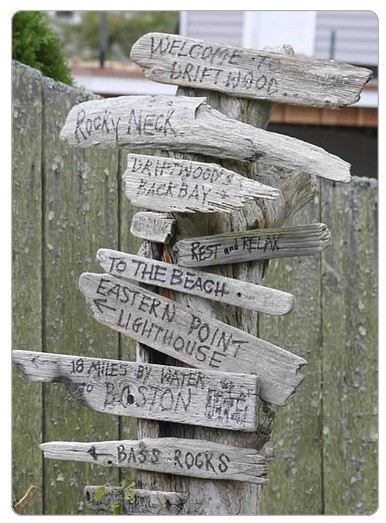 WELCOME TO
DRIFTWOOD.
ROCKY NECK
DRIFTWOOD'S
BACK BAY →
REST and RELAX
TO THE BEACH.
EASTERN POINT
← LIGHTHOUSE
← 18 MILES BY WATER
TO BOSTON
← BASS ROCKS